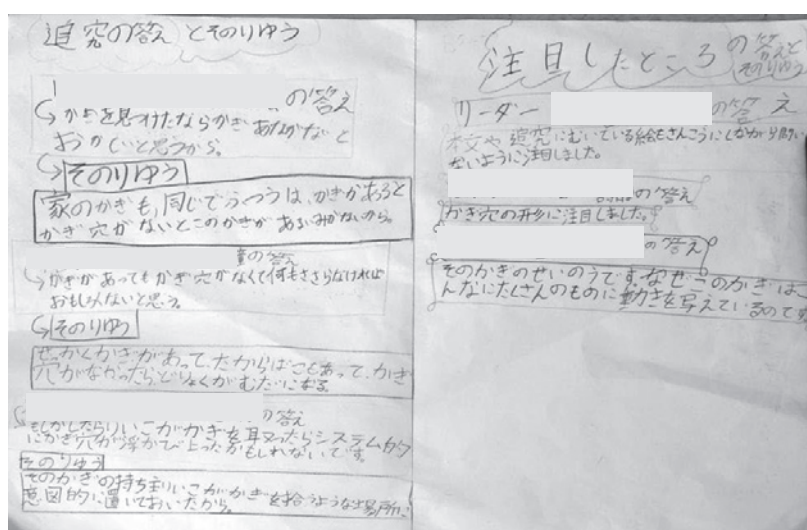 追究の答えとそのりゆう
の答え
かぎを見つけたならかぎあながないと
おかしいと思うから。
そのりゆう
家のかぎも、同じでふつうは、かぎがあると
かぎ穴がないとこのかぎがあるいみがないから。
の答え
かぎがあってもかぎ穴がなくて何もささらなければ
おもしろくないと思う。
そのりゆう
せっかくかぎがあって、たからばこもあって、かぎ
穴がなかったらどりょくがむだになる
の答え
もしかしたらりいこがかぎを取ったらシステム的
にかぎ穴が浮かび上ったかもしれないです。
そのりゆう
そのかぎの持ち主りいこががかぎを拾うような場所に
意図的に置いておいたから。
注目したところの答えと
そのりゆう
リーダー の答え
本文や追究にむいている絵もさんこうにしながら
ないように注目しました。
の答え
かぎ穴の形に注目しました。
の答え
そのかぎのせいのうです。なぜこのかぎはこ
んなにたくさんのものに動きを与えているのです